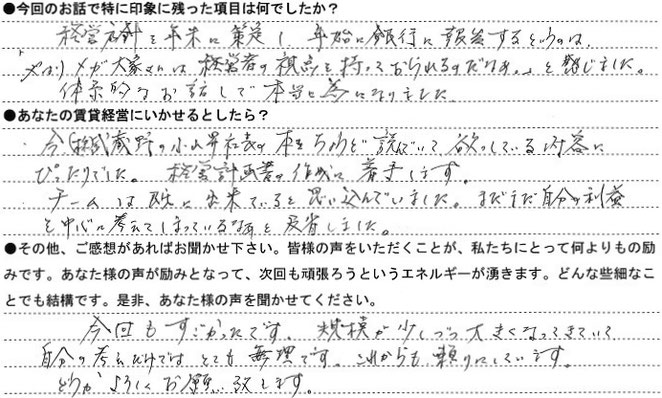 ●今回のお話で特に印象に残った項目は何でしたか？
経営方針を年末に策定し、年始に銀行に報告するというのは、
「やはりメガ大家さんは経営者の視点を持っておられるのだなぁ。」と感じました。
体系的なお話しで本当に為になりました。
●あなたの賃貸経営にいかせるとしたら？
今(株)武蔵野の小山昇社長の本をちょうど読んでいて欲っしている内容に
ぴったりでした。経営計画書の作成に着手します。
チームは既に出来ていると思い込んでいました。まだまだ自分の利益
を中心に考えてしまっているなぁと反省しました。
●その他、ご感想があればお聞かせ下さい。皆様の声をいただくことが、私たちにとって何よりもの励
みです。あなた様の声が励みとなって、次回も頑張ろうというエネルギーが湧きます。どんな些細なこ
とでも結構です。是非、あなた様の声を聞かせてください。
今回もすごかったです。規模が少しづつ大きくなってきていて
自分の考えだけでは、とても無理です。これからも頼りにしています。
どうかよろしくお願い致します。